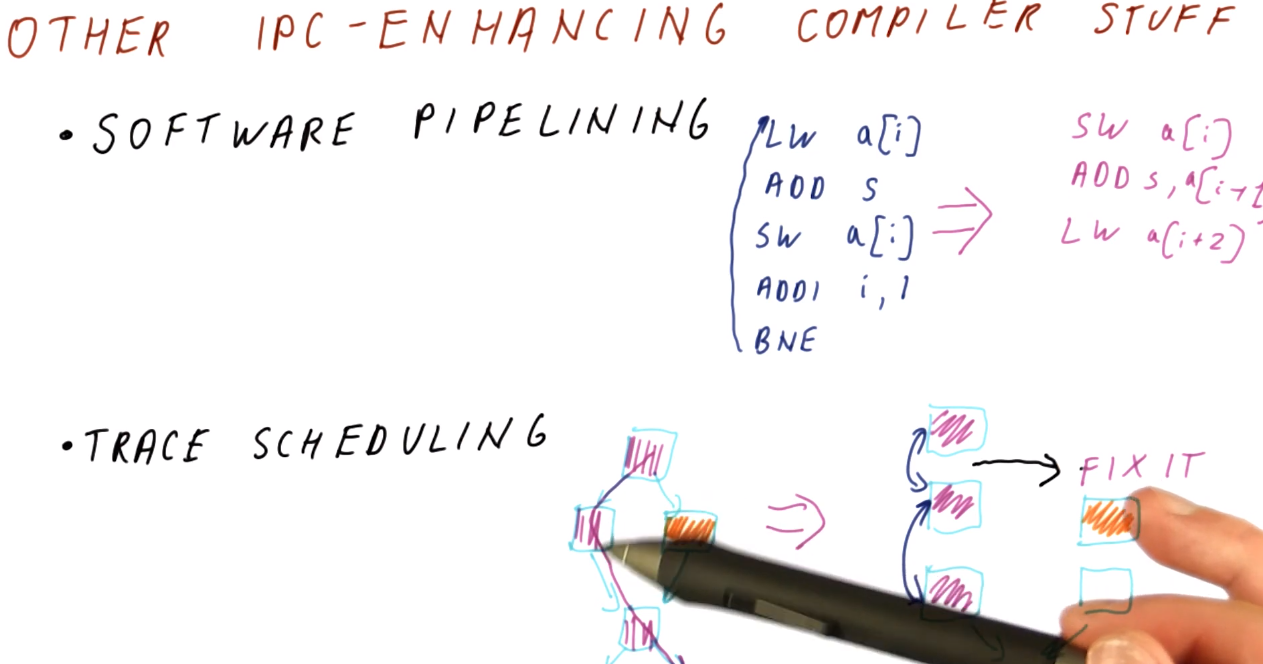 OTHER IPC-ENHANCING COMPILER STUFF
• SOFTWARE PIPELINING
LW a[i]
ADD S
SW a[i]
ADDI i, 1
BNE
SW a[i]
ADD S, a[i+1
LW a[i+2]
• TRACE SCHEDULING
FIX IT